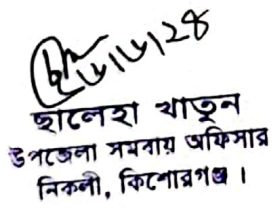 ছালেহা খাতুন
উপজেলা সমবায় অফিসার
নিকলী, কিশোরগঞ্জ।